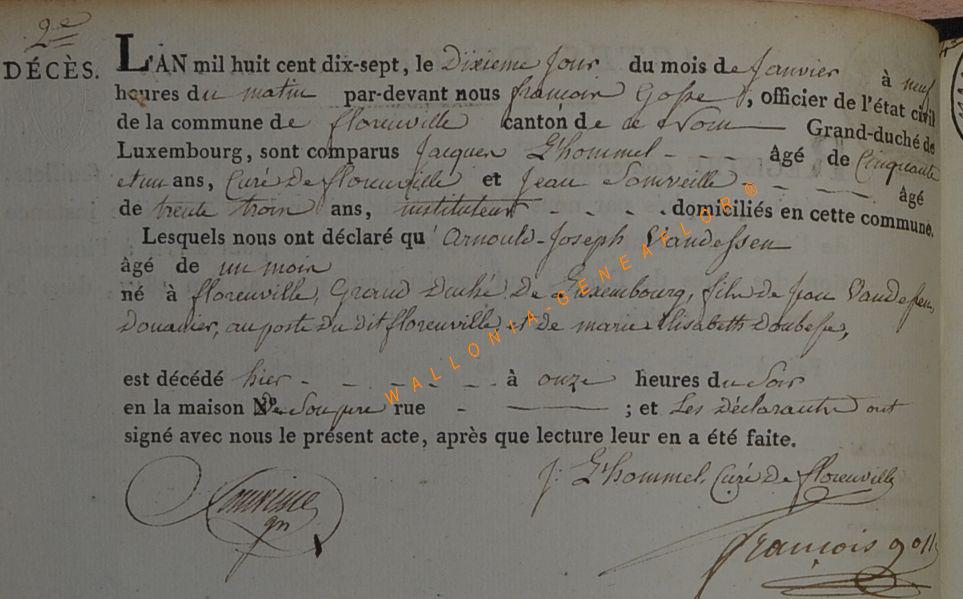 2e
DÉCÈS.
L'AN mil huit cent dix-sept, le Dixieme Jour du mois de Janvier à neuf
heures du matin par-devant nous françois Gosse, officier de l'état civil
de la commune de florenville canton de ce Nom Grand-duché de
Luxembourg, sont comparus Jacques L'hommel - - - âgé de Cinquante
et un ans, Curé de florenville et Jean - - - âgé
de trente trois ans, instituteur - - - . domiciliés en cette commune.
Lesquels nous ont déclaré qu'Arnould-Joseph Vandessen
âgé de un mois
né à florenville, Grand Duché de Luxembourg, fils de Jean Vandessen,
Douanier, au poste du dit florenville et de marie Elisabeth
est décédé hier - - - - - à onze heures du Soir
en la maison No. rue - ; et Les déclarants ont
signé avec nous le présent acte, après que lecture leur en a été faite.
J. L'hommel, Curé de florenville
françois goss
WALLONIA-GENEAFLOR®